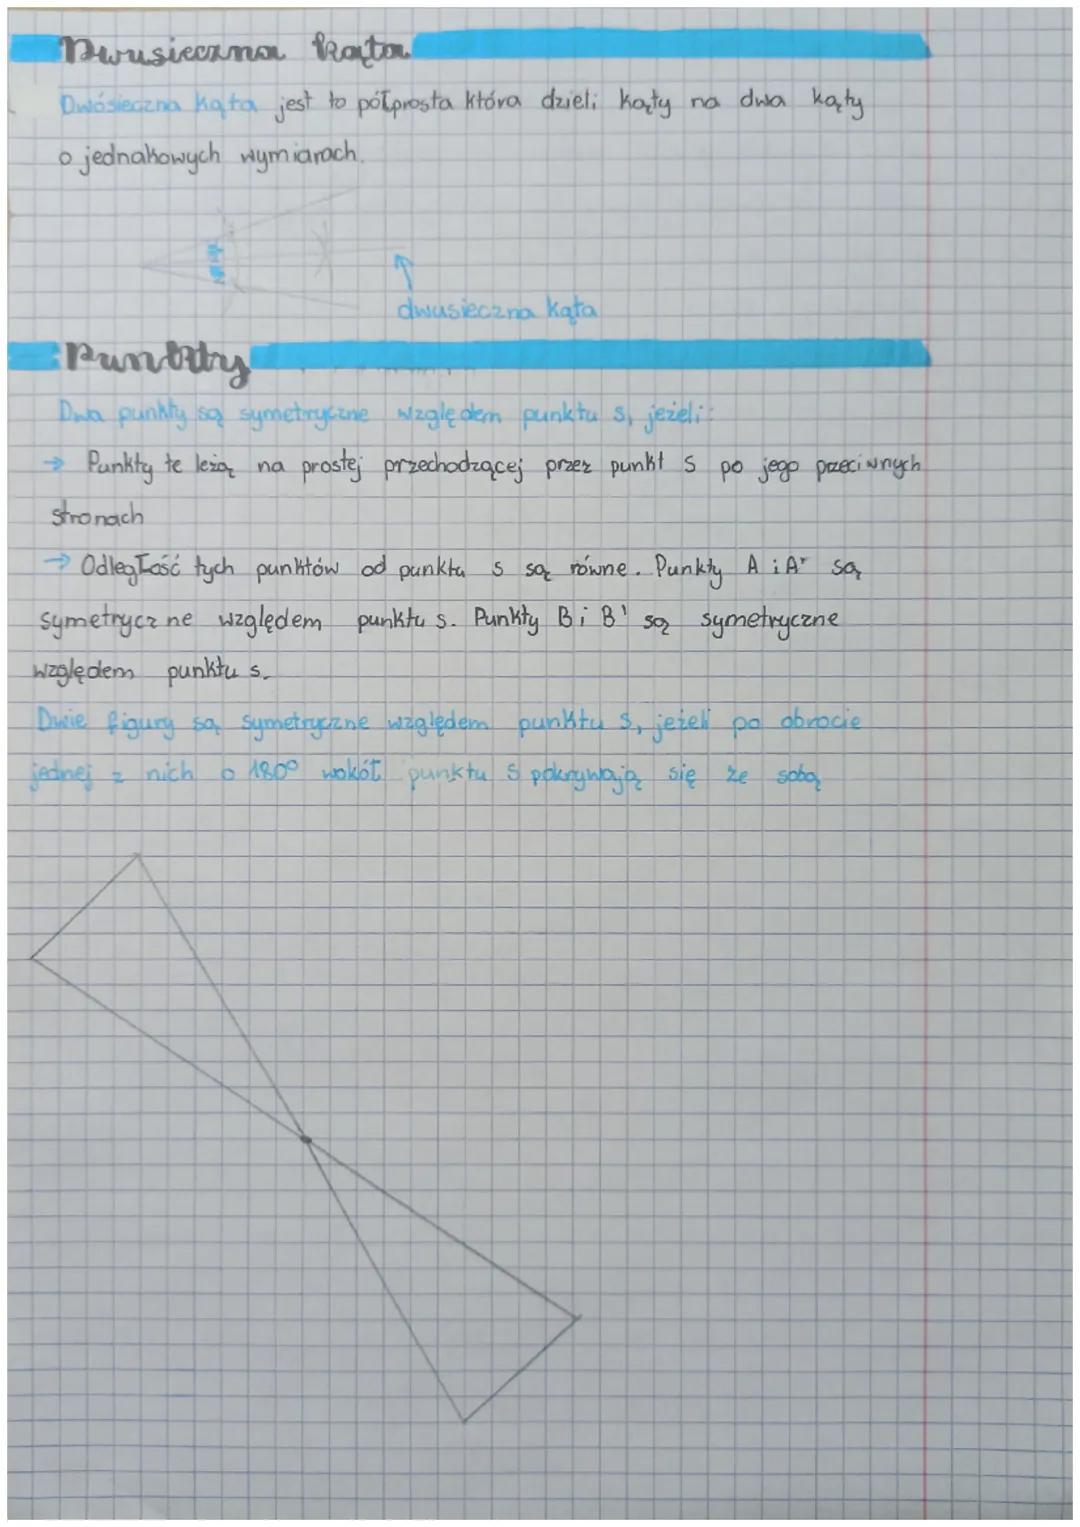 Dwusieczna kąta
Dwósieczna kąta jest to półprosta która dzieli kąty na dwa kąty
o jednakowych wymiarach.
dwusieczna kąta
Punkty
Dwa punkty są symetryczne względem punktu s, jeżeli:
→ Punkty te leżą na prostej przechodzącej przez punkt s po jego przeciwnych
stronach
→ Odległość tych punktów od punktu s są równe. Punkty A i A' są
symetryczne względem punktu s. Punkty B i B' są symetryczne
względem punktu s.
Dwie figury są symetryczne względem punktu s, jeżeli po obrocie
jednej z nich o 180° wokół punktu s pokrywają się ze sobą